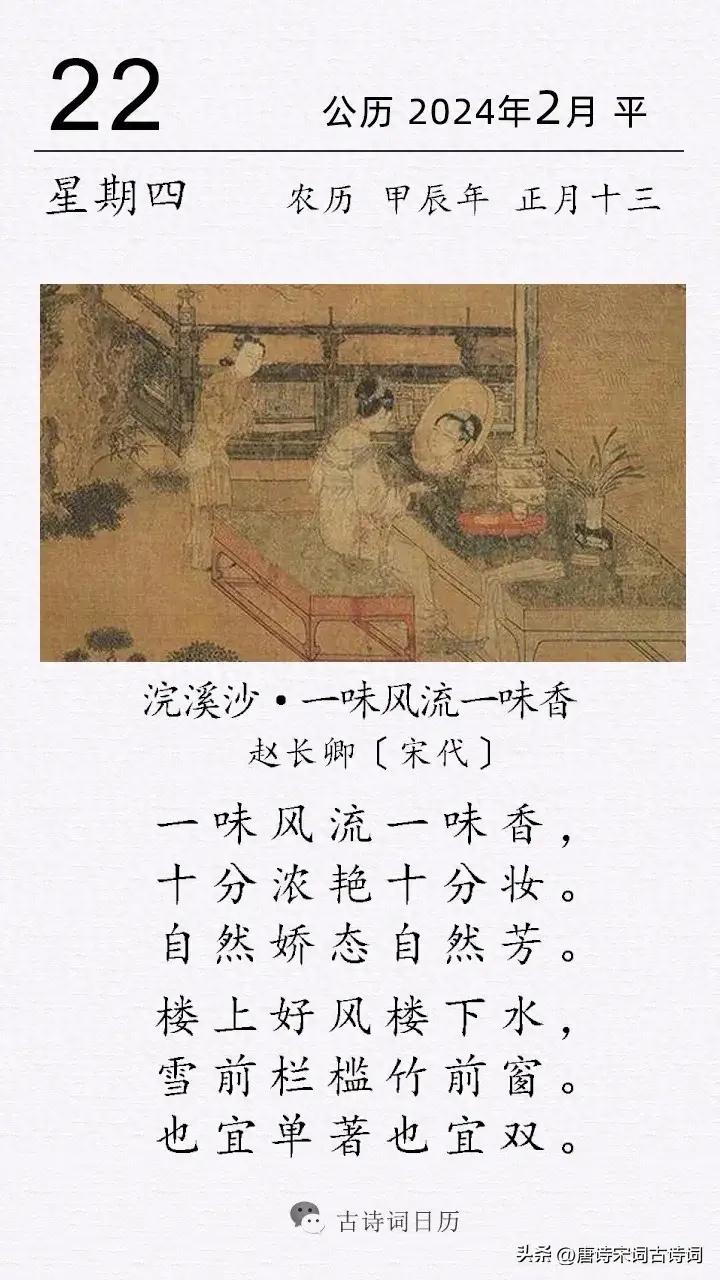 22
公历 2024年2月 平
星期四 农历 甲辰年 正月十三
浣溪沙·一味风流一味香
赵长卿〔宋代〕
一味风流一味香，
十分浓艳十分妆。
自然娇态自然芳。
楼上好风楼下水，
雪前栏槛竹前窗。
也宜单著也宜双。
古诗词日历
头条 @唐诗宋词古诗词